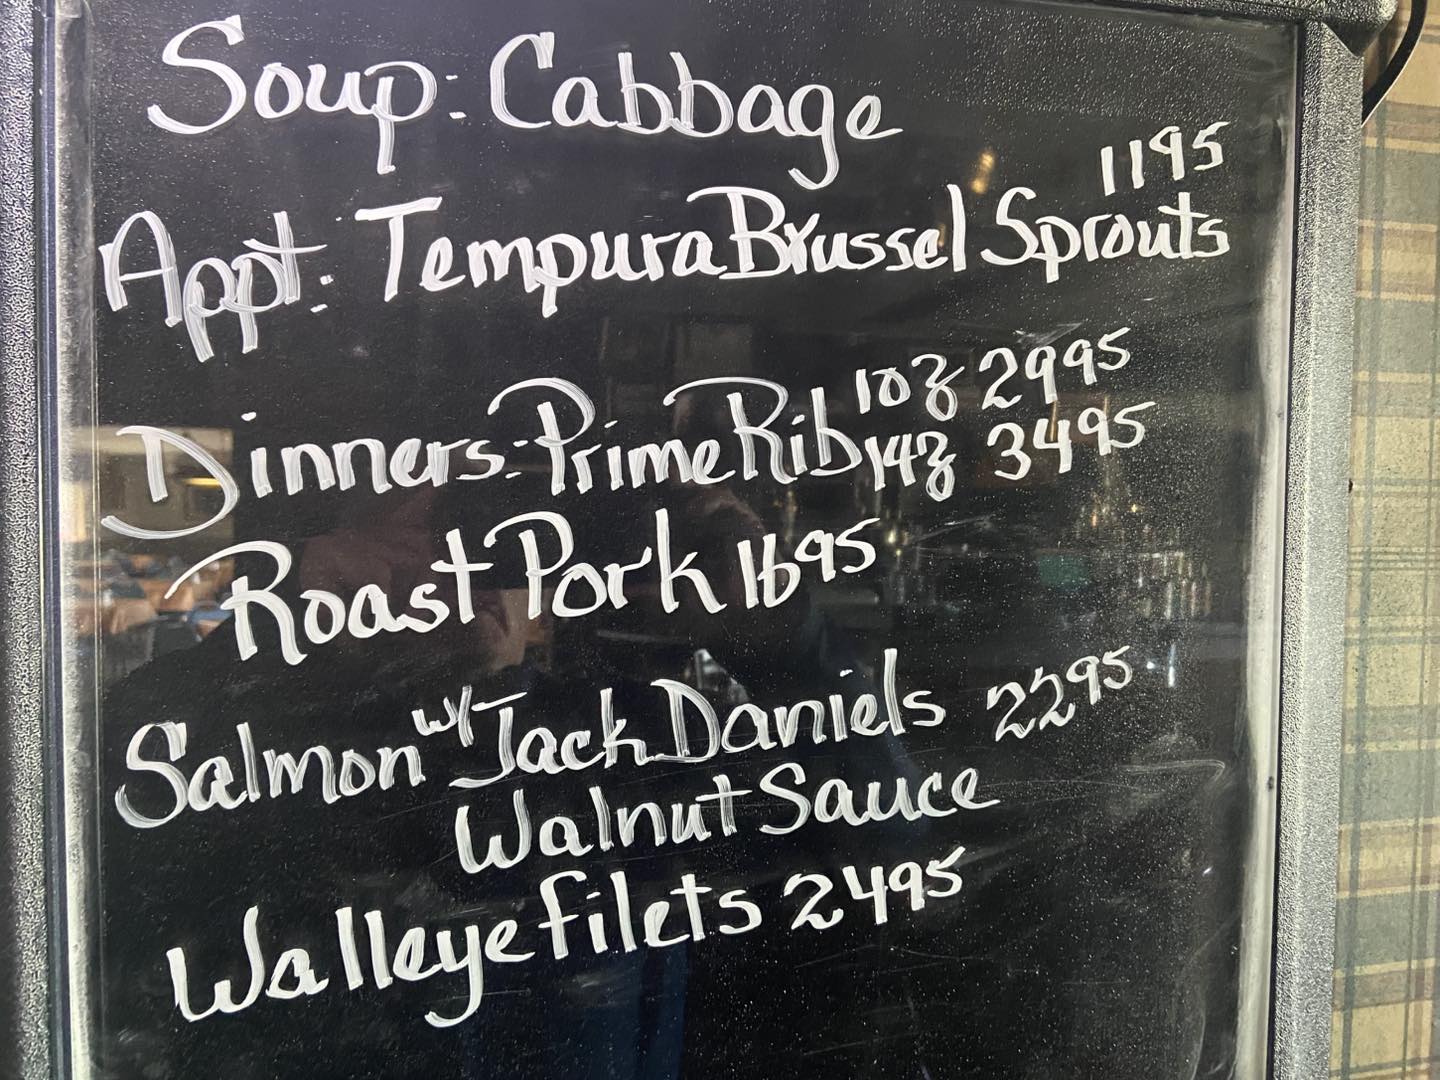 Soup: Cabbage
Appt: Tempura Brussel Sprouts 1195
Dinners: Prime Rib 10z 2995
14z 3495
Roast Pork 1695
Salmon w/ Jack Daniels 2295
Walnut Sauce
Walleye filets 2495